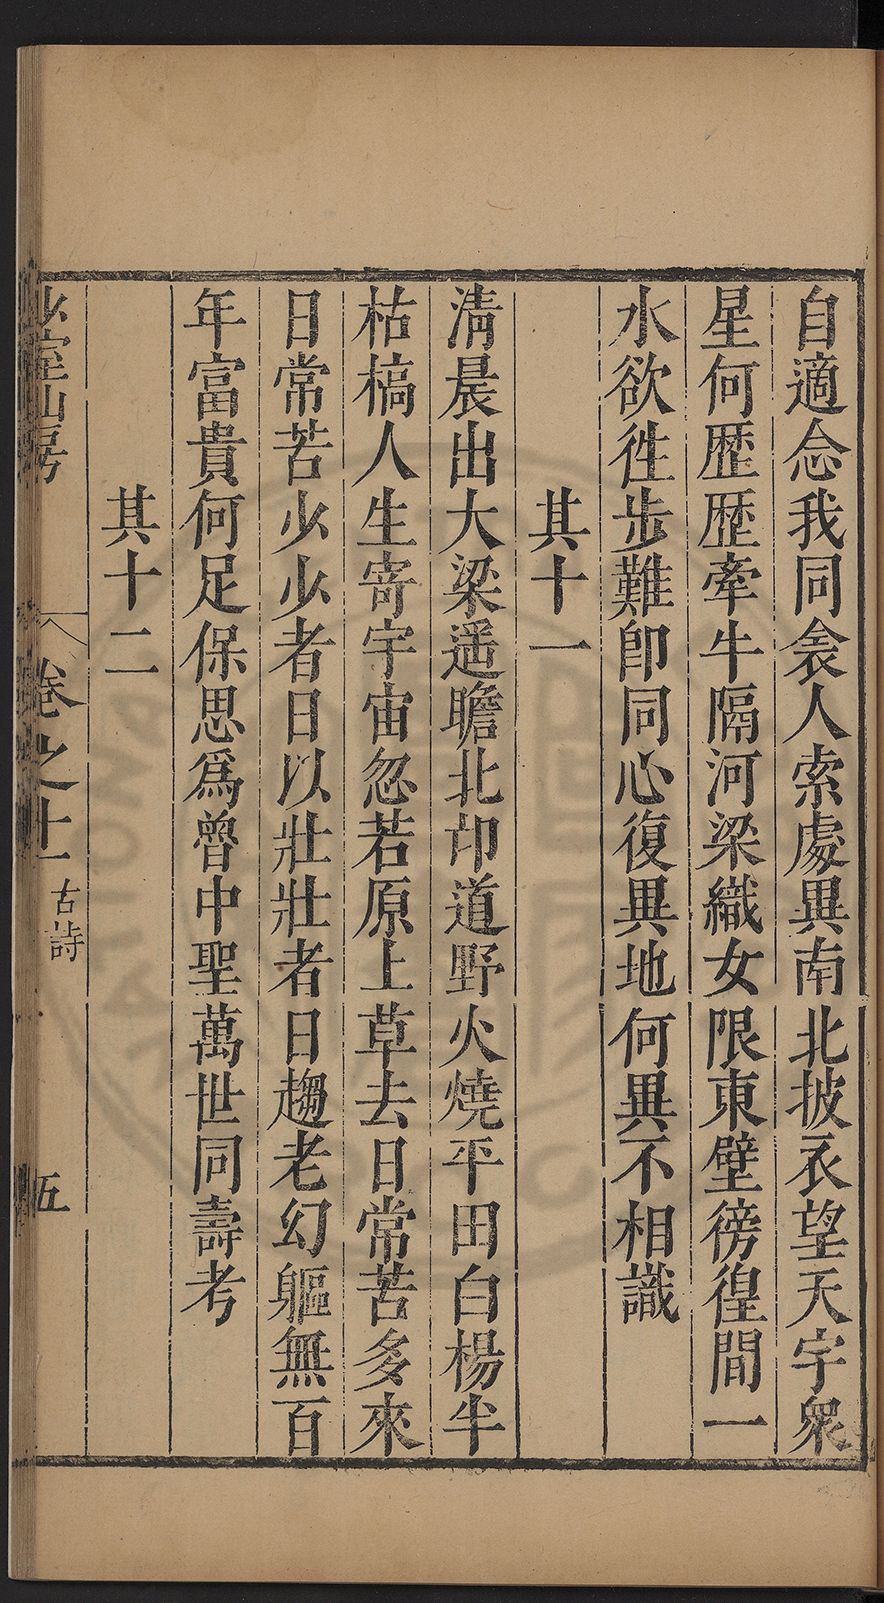 自適念我同衾人索處異南北披衣望天宇衆
星何歷歷牽牛隔河梁織女限東壁徬徨間一
水欲徃步難卽同心復異地何異不相識
其十一
淸晨出大梁遥瞻北邙道野火燒平田白楊半
枯槁人生寄宇宙忽若原上草去日常苦多來
日常苦少少者日以壯壯者日趨老幻軀無百
年富貴何足保思爲曾中聖萬世同壽考
其十二
少室山房
卷之十一
古詩
五